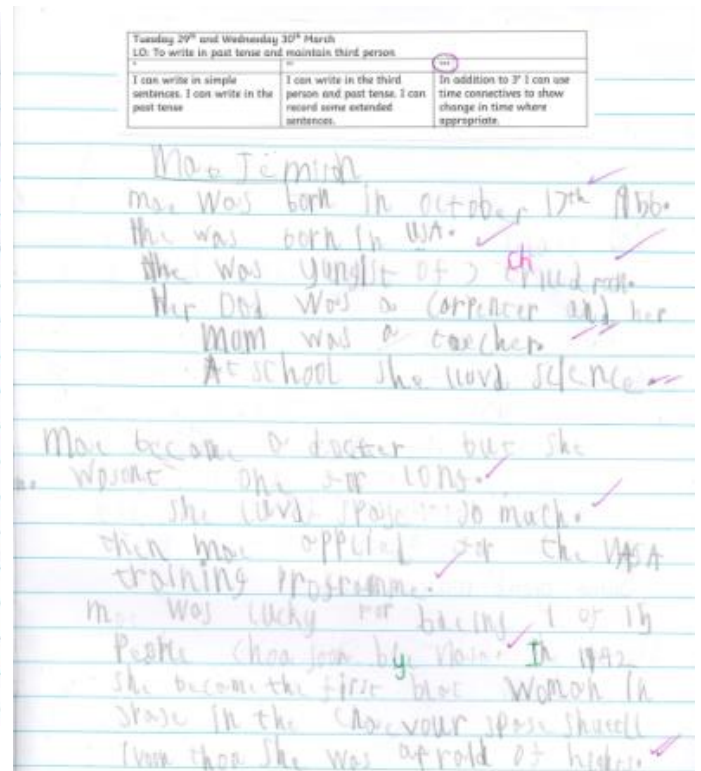 Tuesday 29th and Wednesday 30th March
LO: To write in past tense and maintain third person
* ** ***
I can write in simple sentences. I can write in the past tense
I can write in the third person and past tense. I can record some extended sentences.
In addition to 3* I can use time connectives to show change in time where appropriate.
Mae Jemison
mae Was born in october 17th
She was born in USA.
She was yunglst of 3 ch
Her Dad Was a carpenter and her
mom was a teacher
At school she luvd science
Mae became a docter but she
wasont one for long.
she luvd spase so much.
then mae applied for the NASA
training programme.
mae was lucky for being 1 of 15
People by In 1992
she became the first blac woman in
spase in the spase shutell
she was afraid of